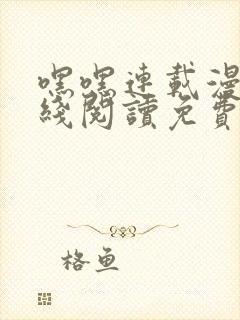 嘿嘿連載漫
綫閱讀免費
格鱼